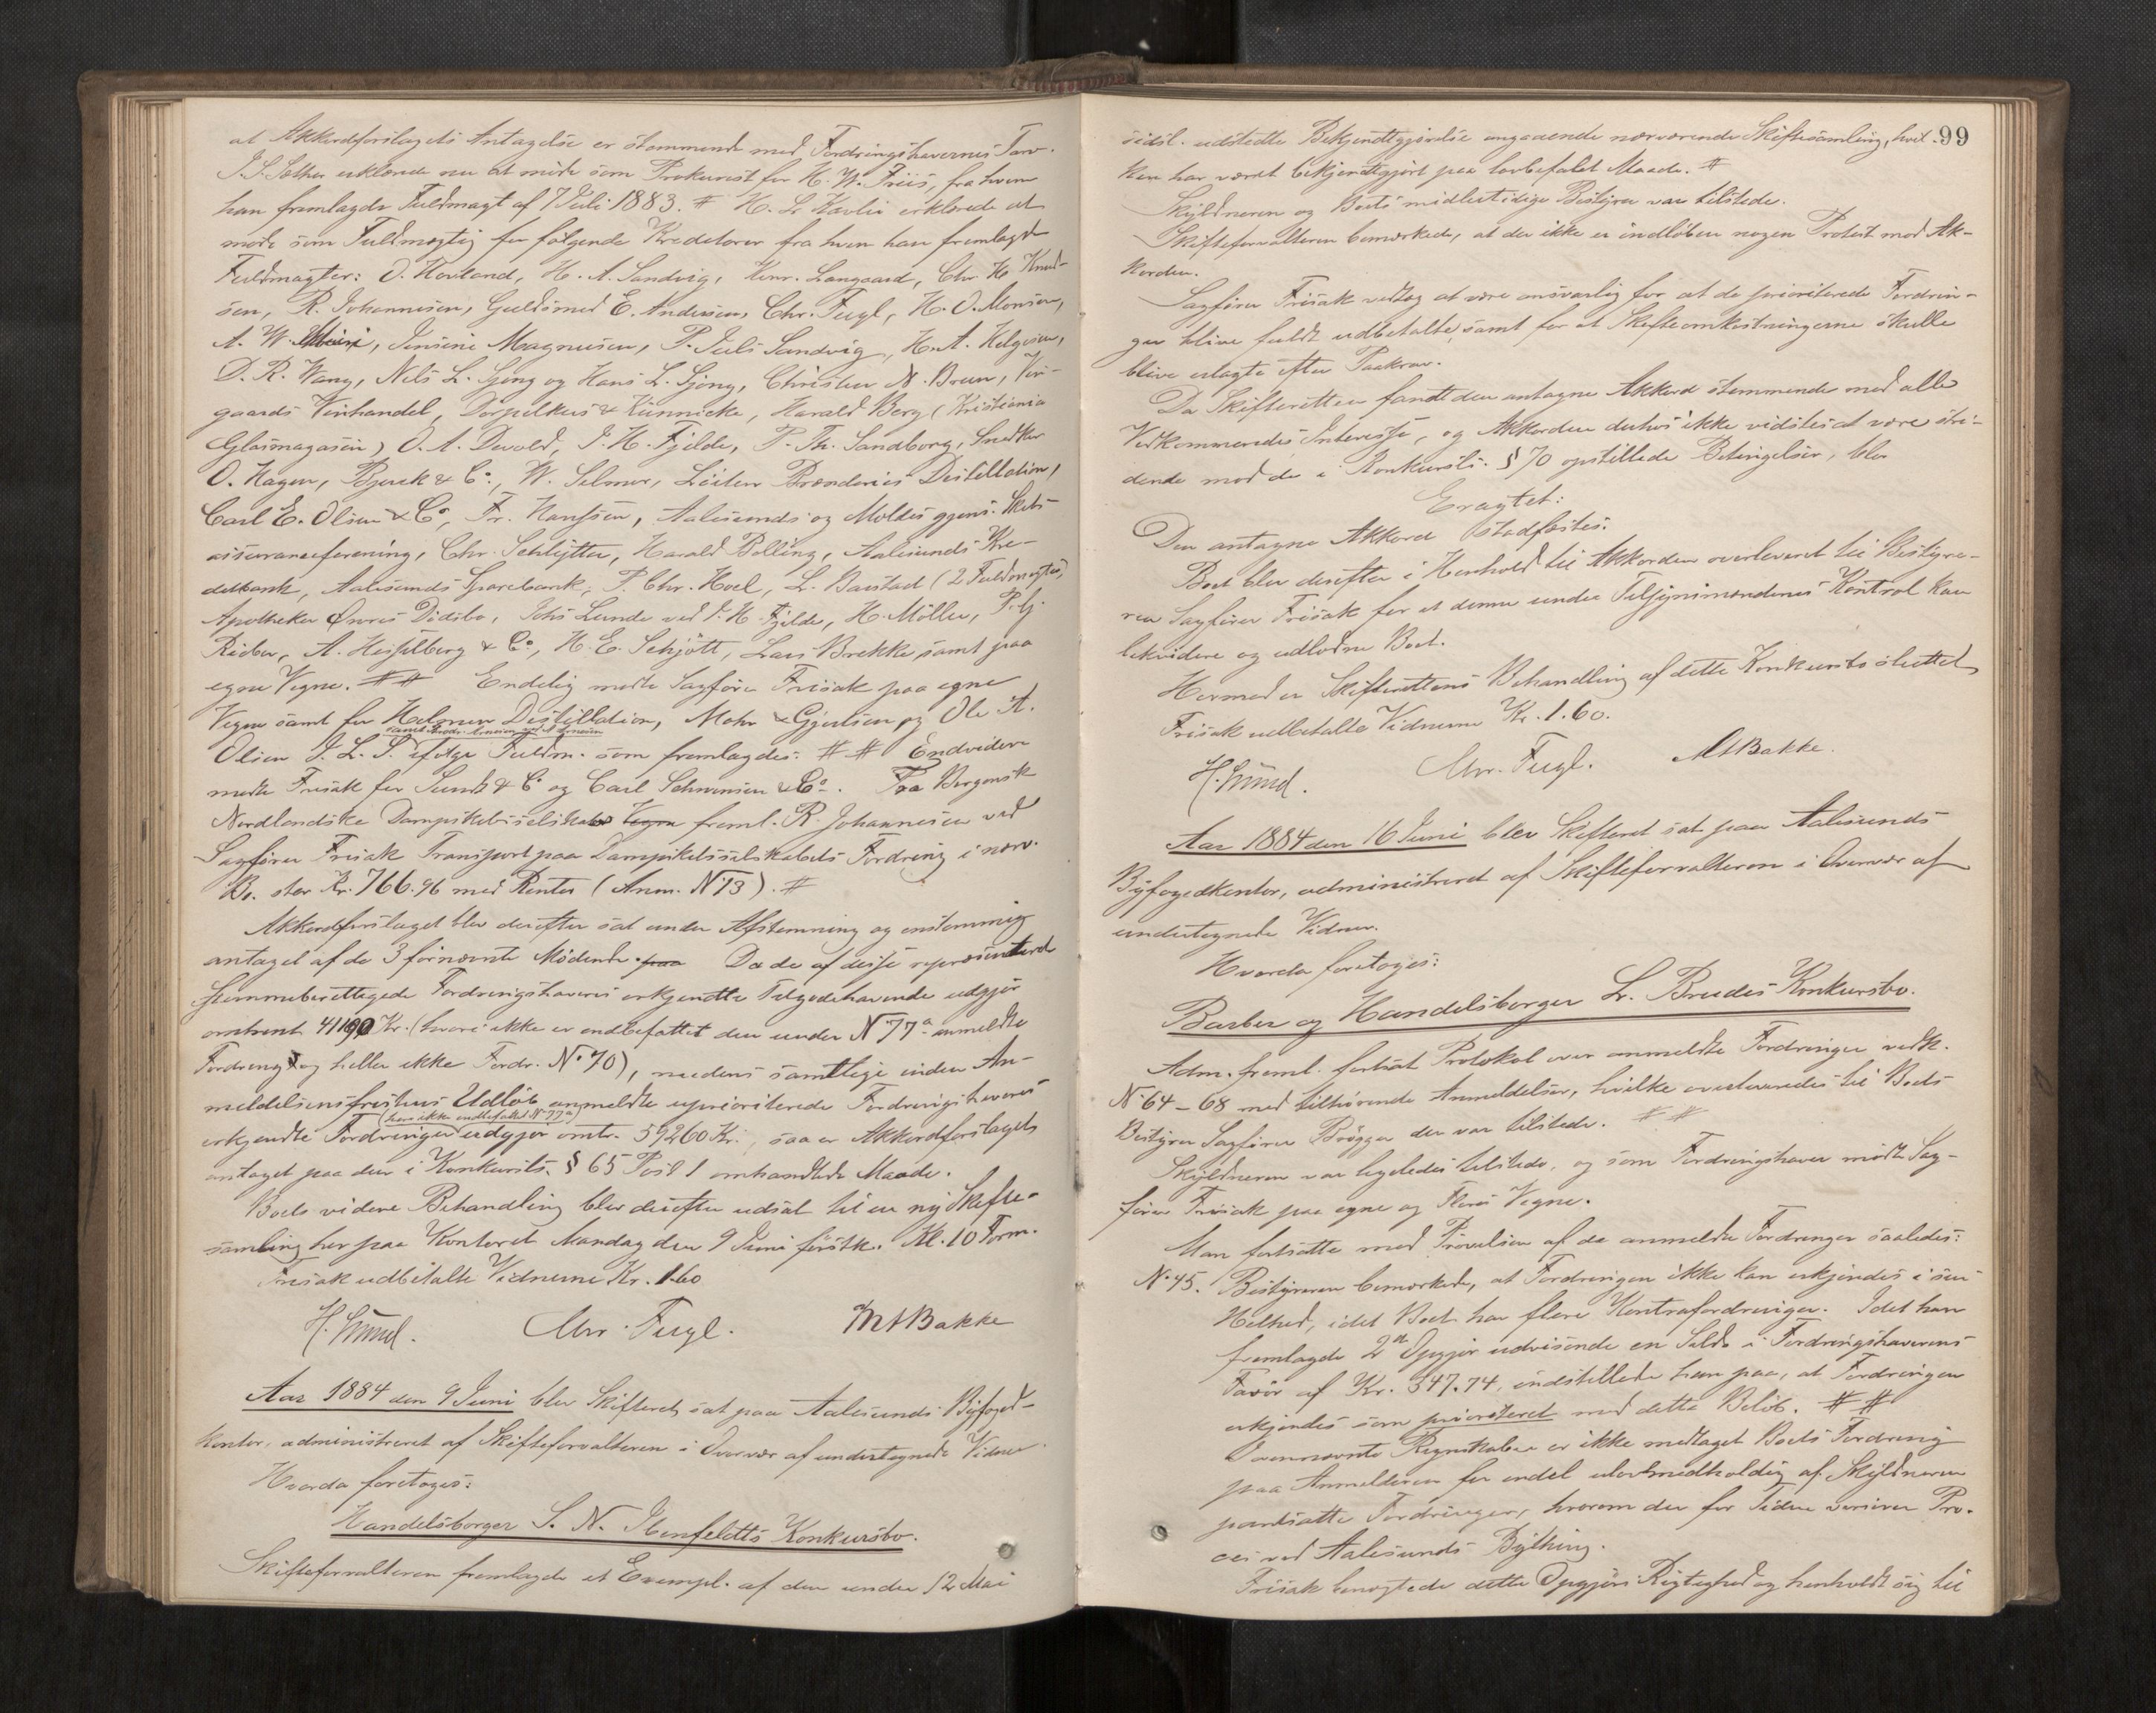 at Akkordforslagets Antagelse er stemmende med Fordringshavernes Tarv.
J. S. Sæther erklærede nu at møde som Prokurist for H. W. Friis, fra hvem
han fremlagde Fuldmagt af 7 Juli 1883. # H. Lr Karlin erklærede at
møde som Fuldmægtig for følgende Kreditorer fra hvem han fremlagde
Fuldmagter: O. Hovland, H. A. Sandvig, Henr. Langaard, Chr. H. Knud-
sen, R. Johannesen, Guldsmed E. Andersen, Chr. Fugl, H. O. Monsen,
A. W. , Jensine Magnusen, P. Juls Sandvig, H. A. Helgesen,
D. R. Wang, Nils L. Sjong og Hans L. Sjong, Christen N. Bruun, Vin-
gaards Vinhandel, Dorpilkus & Kunnicke, Harald Berg (Kristiania
Glasmagasin) O. A. Devold, J. H. Fjelde, P. Th. Sandborg, Snedker
O. Hagen, Bjerck & Co, W. Selmer, Løiten Brænderies Destillation,
Carl E. Olsen & Co, Fr. Hanssen, Aalesunds og Moldes gjens. Skibs-
assuranceforening, Chr. Schlytter, Harald Bolling, Aalesunds Kre-
ditbank, Aalesunds Sparebank, P. Chr. Hoel, L. Barstad (2 Fuldmagter),
Apotheker Ønnes Dødsbo, Johs Lunde ved J. H. Fjelde, H. Møller, P. G.
Rieber, A. Hesselberg & Co, H. E. Schjøtt, Lars Brekke samt paa
egne Vegne. ## Endelig mødte Sagfører Frisak paa egne
Vegne samt for Helmer Destillation, Mohr & Gjertsen og Ole A.
Olsen J. L. S. ifølge Fuldm. som fremlagdes. ## Endvidere
mødte Frisak for Sundt & Co og Carl Schwensen & Co. Fra Bergensk
Nordlandske Dampskibsselskabs Vegne freml. R. Johannesen ved
Sagfører Frisak Transport paa Dampskibsselskabets Fordring i nærv.
Bo. stor Kr. 766.96 med Renter (Anm. No 13). #
Akkordforslaget blev derefter sat under Afstemning og enstemmig
antaget af de 3 førnævnte Mødende. paa Da de af disse repræsenterede
stemmeberettigede Fordringshaveres erkjendte Tilgodehavende udgjør
omtrent 41190 Kr. (hvori ikke er indbefattet den under No 77a anmeldte
Fordring og heller ikke Fordr. No 70), medens samtlige inden An-
meldelsensfristens Udløb anmeldte uprioriterede Fordringshaveres
(heri ikke indbefattet No 77a)
erkjendte Fordringer udgjør omtr. 59260 Kr., saa er Akkordforslaget
antaget paa den i Konkursls. § 65 Post 1 omhandlede Maade.
Boets videre Behandling blev derefter udsat til en ny Skifte-
samling her paa Kontoret Mandag den 9 Juni førstk. Kl. 10 Form.
Frisak udbetalte Vidnerne Kr. 1.60
H. Smud. Chr. Fugl. M A Bakke
Aar 1884 den 9 Juni blev Skifteret sat paa Aalesunds Byfoged-
kontor, administreret af Skifteforvalteren i Overvær af undertegnede Vidner.
Hvorda foretoges:
Handelsborger S. N. Ibenfeldts Konkursbo.
Skifteforvalteren fremlagde et Exempl. af den under 12 Mai
99
sidstl. udstedte Bekjendtgjørelse angaaende nærværende Skiftesamling, hvil-
ken har været bekjendtgjort paa lovbefalet Maade. #
Skyldneren og Boets midlertidige Bestyrer var tilstede.
Skifteforvalteren bemærkede, at der ikke er indløben nogen Protest mod Ak-
korden.
Sagfører Frisak vedtog at være ansvarlig for at de prioriterede Fordrin-
ger blive fuldt udbetalte, samt for at Skifteomkostningerne skulle
blive erlagte efter Paakrav.
Da Skifteretten fandt den antagne Akkord stemmende med alle
Vedkommendes Interesse, og Akkorden derhos ikke vidstes at være stri-
dende mod de i Konkursls. § 70 opstillede Betingelser, blev
Eragtet:
Den antagne Akkord stadfæstes.
Boet blev derefter i Henhold til Akkorden overleveret til Bestyre-
ren Sagfører Frisak for at denne under Tilsynsmændenes Kontrol kan
likvidere og udlodne Boet.
Hermed er Skifterettens Behandling af dette Konkursbo sluttet
Frisak udbetalte Vidnerne Kr. 1.60.
H. Smud. Chr. Fugl. M A Bakke.
Aar 1884 den 16 Juni blev Skifteret sat paa Aalesunds
Byfogedkontor, administreret af Skifteforvalteren i Overvær af
undertegnede Vidner.
Hvorda foretoges:
Barber og Handelsborger L. Brudes Konkursbo.
Adm. freml. fortsat Protokol over anmeldte Fordringer vedk.
No 64-68 med tilhørende Anmeldelser, hvilke overleveredes til Boets
Bestyrer Sagfører Brøgger der var tilstede. ##
Skyldneren var ligeledes tilstede, og som Fordringshaver mødte Sag-
fører Frisak paa egne og Fleres Vegne.
Man fortsatte med Prøvelsen af de anmeldte Fordringer saaledes:
No 45. Bestyreren bemærkede, at Fordringen ikke kan erkjendes i sin
Helhed, idet Boet har flere Kontrafordringer. Idet han
fremlagde 2de Opgjør udvisende en Saldo i Fordringshaverens
Favør af Kr. 347.74, indstillede han paa, at Fordringen
erkjendes som prioriteret med dette Beløb. ##
I ovennævnte Regnskaber er ikke medtaget Boets Fordring
paa Anmelderen for endel ulovmedholdig af Skyldneren
pantsatte Fordringer, hvorom der for Tiden verserer Pro-
ces ved Aalesunds Bything.
Frisak benegtede dette Opgjørs Rigtighed og henholdt sig til